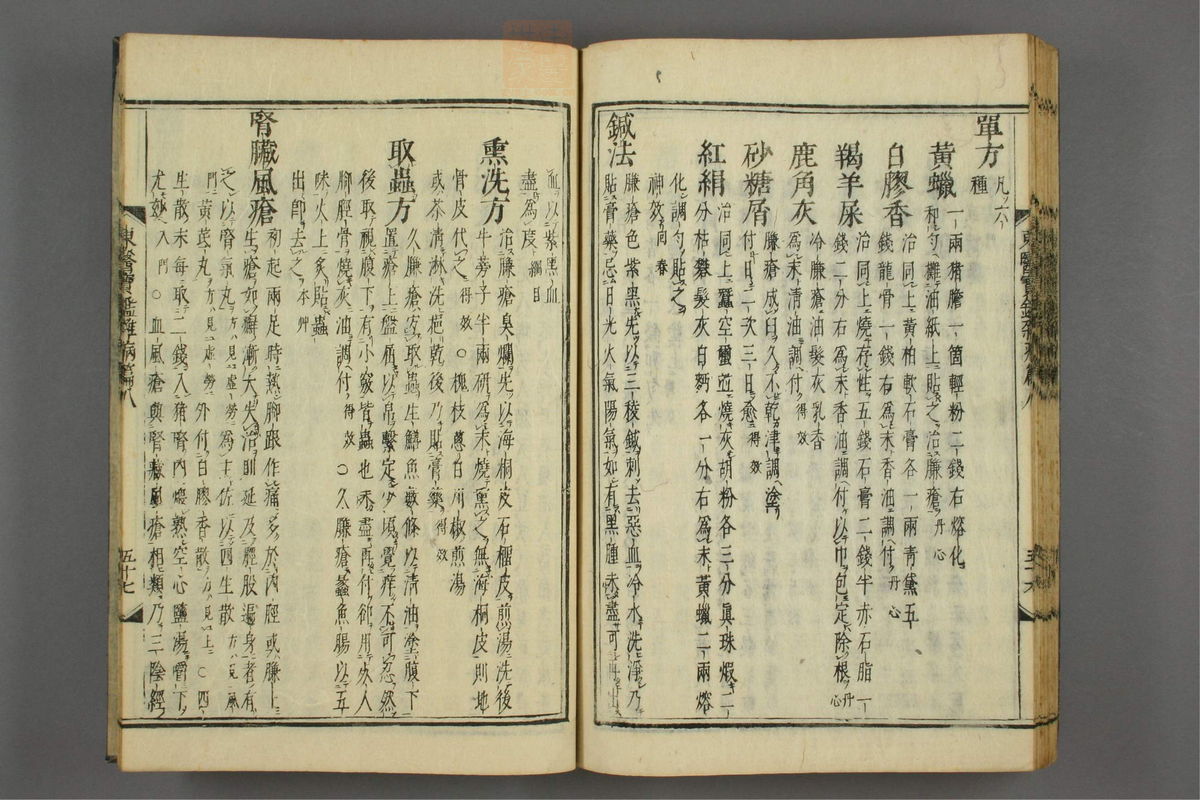 單方 凡六種
黃蠟 一兩猪膽一箇輕粉二錢右熔化
和勻攤油紙上貼之治臁瘡丹心
白膠香 治同上黃柏軟石膏各一兩青黛五
錢龍骨一錢右爲末香油調付丹心
羯羊屎 治同上燒存性五錢石膏二錢半赤石脂一
錢二分右爲末香油調付以巾包定除根丹心
鹿角灰 冷臁瘡油髮灰乳香
爲末清油調付得效
砂糖屑 臁瘡成臼久不乾津調塗
付日二次三日愈得效
紅絹 治同上蠶空蠒並燒灰胡粉各三分眞珠蝦二
分枯礬髮灰白麪各一分右爲末黃蠟二兩熔
化調勻貼之
神效回春
鍼法 臁瘡色紫黑先以三稜鍼刺去惡血冷水洗淨乃
貼膏藥忌日光火氣陽氣如有黑腫未盡可再出
血以紫黑血
盡爲度綱目
熏洗方 治臁瘡臭爛先以海桐皮石榴皮煎湯洗後
牛蒡子半兩硏爲末燒熏之無海桐皮則地
骨皮代之得效○槐枝葱白川椒煎湯
或茶清淋洗挹乾後乃貼膏藥得效
取蟲方 久臁瘡宜取蟲生鱔魚數條以清油塗腹下
置瘡上盤屈以帛繫定少頃覺痒不可忍然
後取視腹下有小竅皆蟲也未盡再付却用死人
腳脛骨燒灰油調付得效○久臁瘡蠡魚腸以五
味火上炙貼蟲
出卽去之本艸
腎臟風瘡 初起兩足時熱腳跟作痛多於內脛或臁上
生瘡如癬漸大失治則延及腿股遍身者有
之以腎氣丸方見虛勞爲主佐以四生散方見風
門黃芪丸方見虛勞外付白膠香散方見上○四
生散末每取二錢入猪腎內煨熟空心鹽湯嚼下
尤妙入門○血風瘡與腎臟風瘡相類乃三陰經
東醫寶鑑雜病篇八
五十七